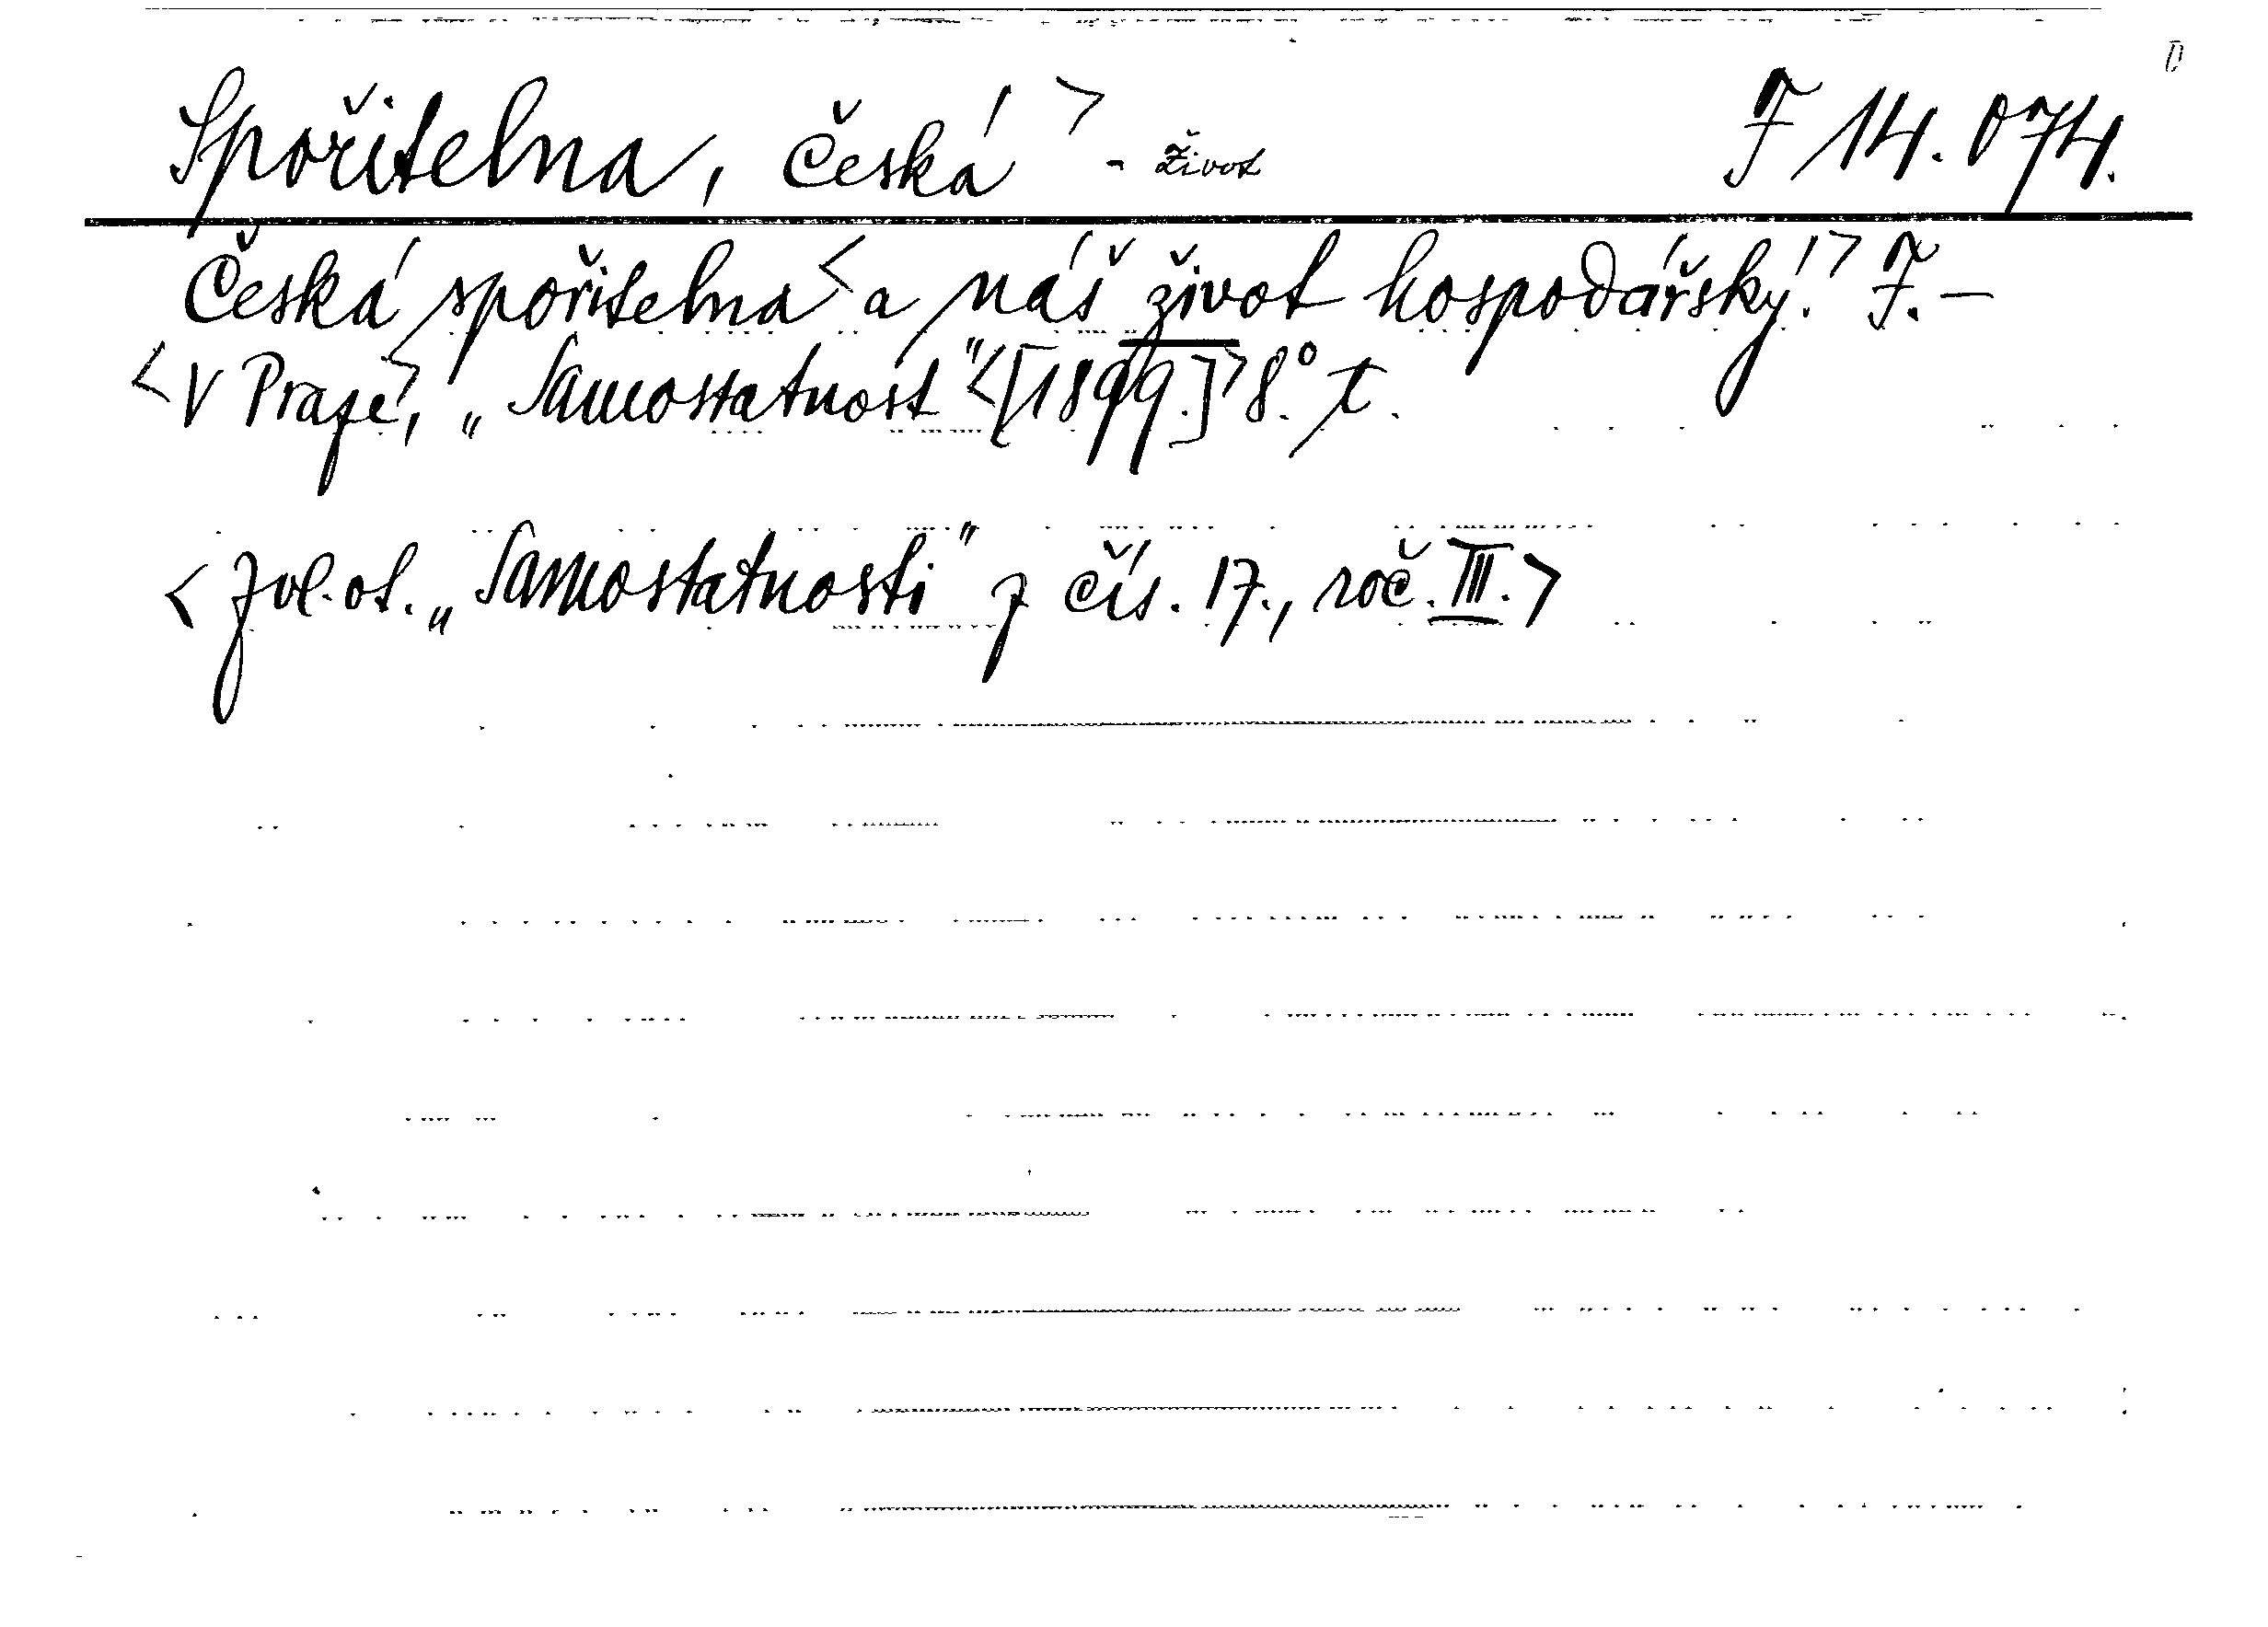 Spořitelna, Česká > - život F 14.074.
Česká spořitelna < a náš život hospodářský. > F. —
< V Praze >, „Samostatnost" < [1899.] > 8°. t.
< Zvl. ot. „Samostatnosti" z čís. 17., roč. III. >